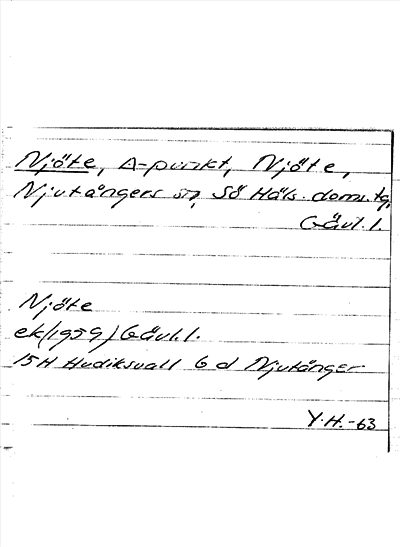 Njöte, Δ-punkt, Njöte,
Njutångers sn, Sö Häls. doms.tg,
Gävl.l.
Njöte
ek(1959)Gävl.l.
15H Hudiksvall 6 d Njutånger
Y.H.-63